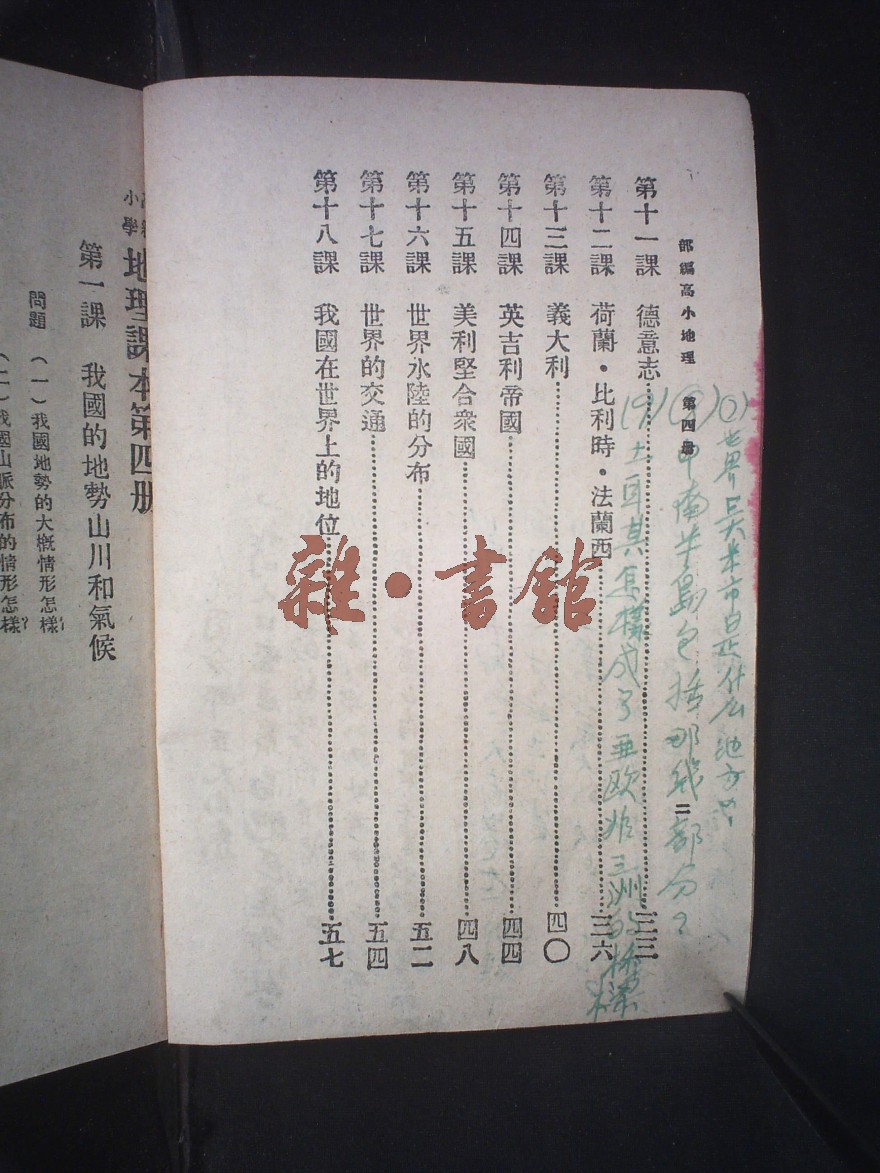 部編高小地理　第四册　二
第十一課　德意志………三三
第十二課　荷蘭・比利時・法蘭西………三六
第十三課　義大利………四〇
第十四課　英吉利帝國………四四
第十五課　美利堅合衆國………四八
第十六課　世界水陸的分布………五二
第十七課　世界的交通………五四
第十八課　我國在世界上的地位………五七
世界　米市是什么地方
中南半島包括那幾部分？
(9)土耳其怎樣成了亞歐非三洲的橋梁
雜・書館
小學地理課本第四册
第一課　我國的地勢山川和氣候
問題　(一)我國地勢的大概情形怎樣？
(二)我國山脈分布的情形怎樣？